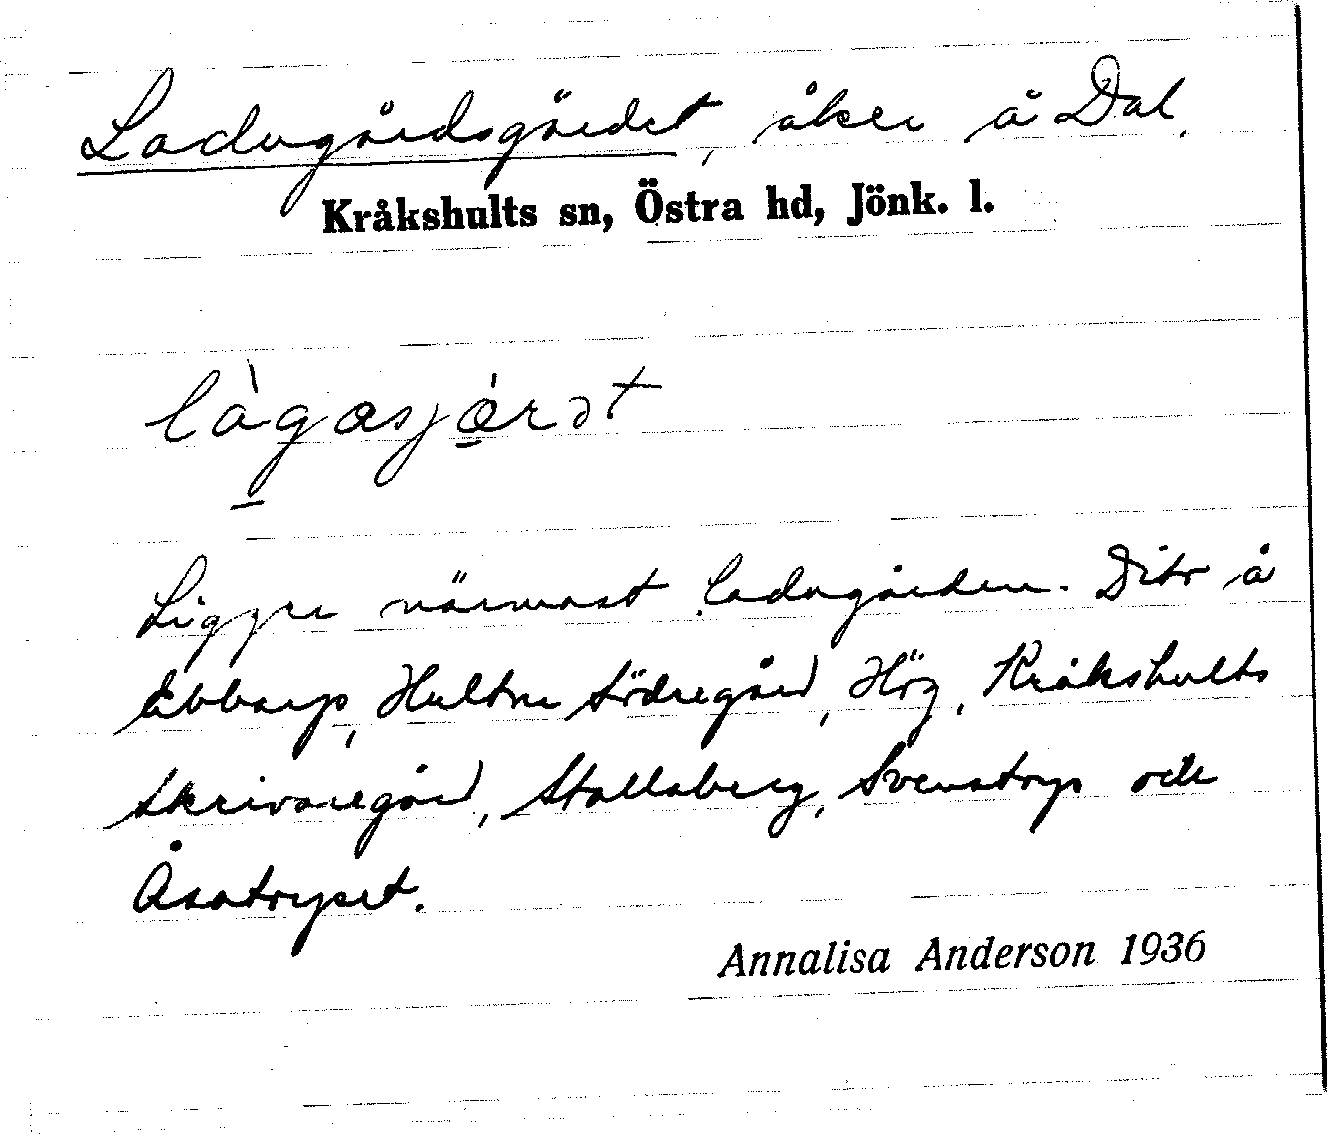 Ladugårdsgärdet, åker å Dal.
Kråkshults sn, Östra hd, Jönk. l.
làgasjærət
Ligger närmast ladugården. Dito å
Ebbarp, Hultna Södregård, Hög, Kråkshults
Skrivaregård, Stallaberg, Svenstorp och
Åsatorpet.
Annalisa Anderson 1936